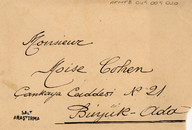 Monsieur
Moise Cohen
Cankaya Caddesi N° 21
Büyük-Ada
ARAŞTIRMA